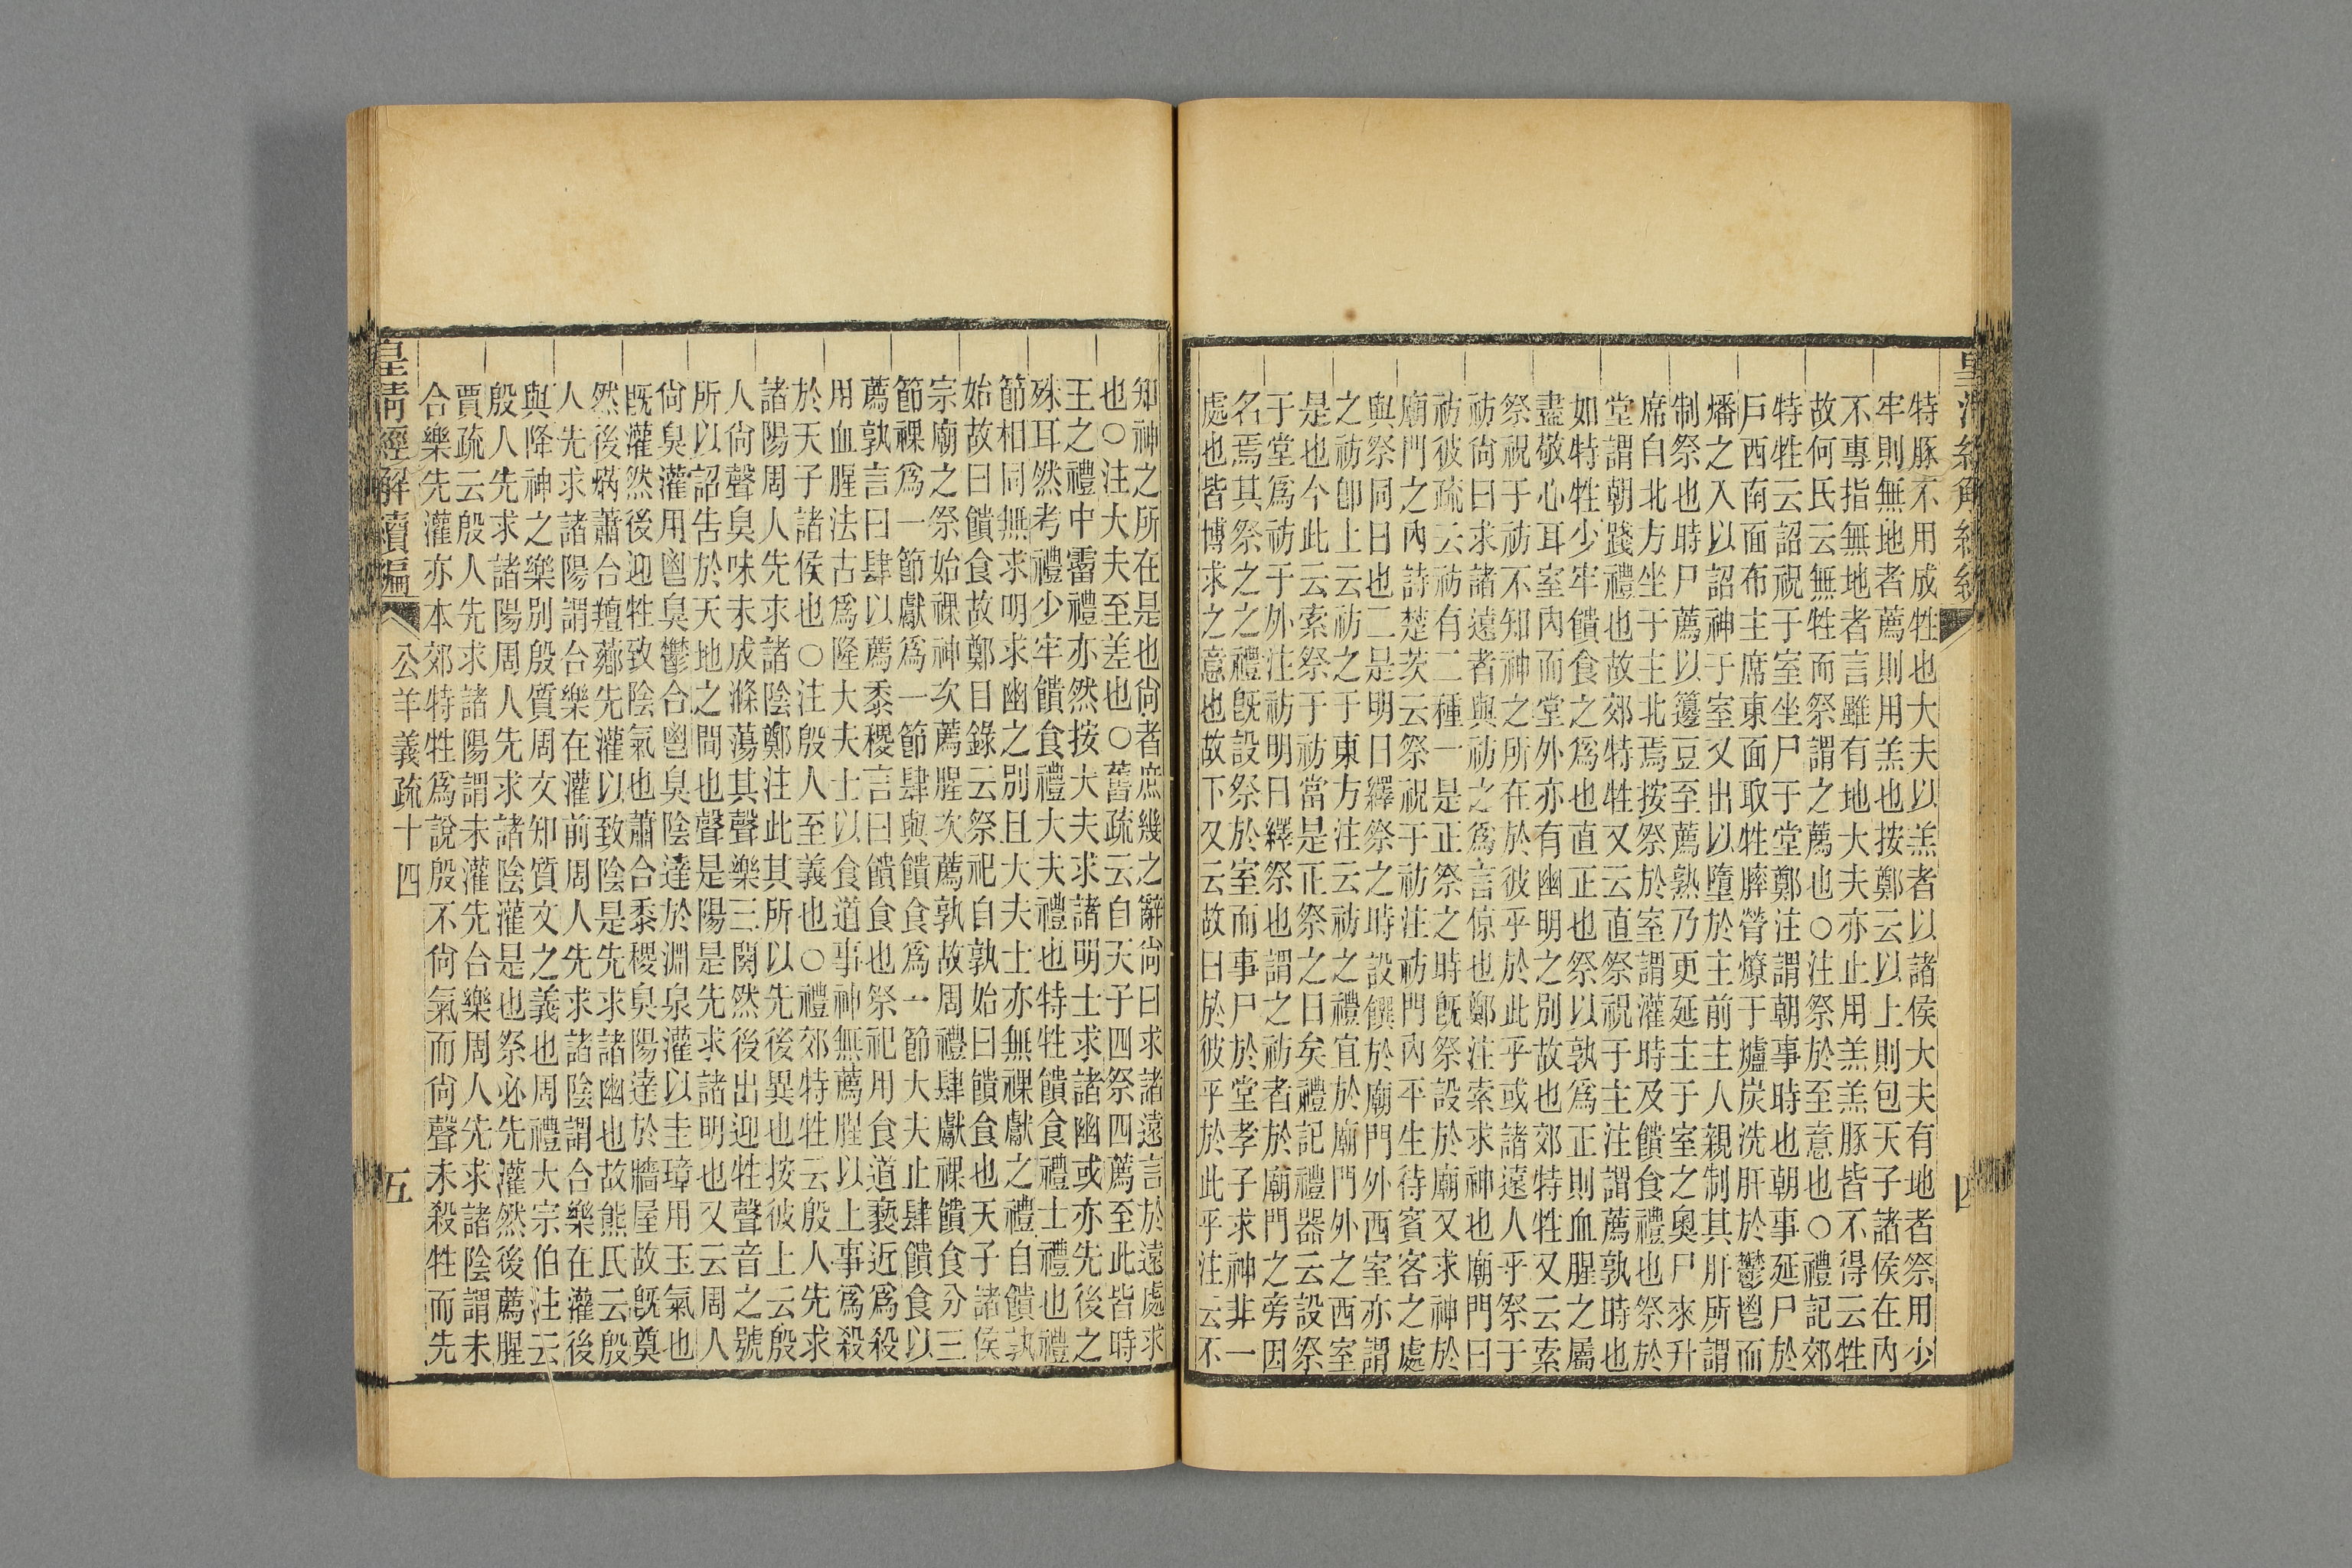 特豚不用成牲也大夫以羔者以諸侯大夫有地者祭用少
牢則無地者薦則用羔也按鄭云以上則包天子諸侯在內
不專指無地者言雖有地大夫亦止用羔羔豚皆不得云牲
故何氏云無牲而祭謂之薦也○注祭於至意也○禮記郊
特牲云詔祝于室坐尸于堂鄭注謂朝事時也朝事延尸於
戶西南面布主席東面取牲膟膋燎于爐炭洗肝於鬱鬯而
燔之入以詔神于室又出以墮於主前主人親制其肝所謂
制祭也時尸薦以籩豆至薦熟乃更延主于室之奧尸來升
席自北方坐于主北焉按祭於室謂灌時及饋食禮也祭於
堂謂朝踐禮也故郊特牲又云直祭祝于主注謂薦孰時也
如特牲少牢饋食之爲也直正也祭以孰爲正則血腥之屬
盡敬心耳室內而堂外亦有幽明之別故也郊特牲又云索
祭祝于祊不知神之所在於彼乎於此乎或諸遠人乎祭于
祊尙曰求諸遠者與祊之爲言倞也鄭注索求神也廟門曰
祊彼疏云祊有二種一是正祭之時旣祭設於廟又求神於
廟門之內詩楚茨云祭祝于祊注祊門內平生待賓客之處
與祭同日也二是明日繹祭之時設饌於廟門外西室亦謂
之祊卽上云祊之于東方注云祊之禮宜於廟門外之西室
是也今此云索祭于祊當是正祭之日矣禮記禮器云設祭
于堂爲祊于外注祊明日繹祭也謂之祊者於廟門之旁因
名焉其祭之之禮旣設祭於室而事尸於堂孝子求神非一
處也皆博求之意也故下又云故曰於彼乎於此乎注云不
知神之所在是也尙者庶幾之辭尙曰求諸遠言於遠處求
也○注大夫至差也○舊疏云自天子四祭四薦至此皆時
王之禮中霤禮亦然按大夫求諸明士求諸幽或亦先後之
殊耳然考禮少牢饋食禮大夫禮也特牲饋食禮士禮也禮
節相同無求明求幽之別且大夫士亦無祼獻之禮自饋孰
始故曰饋食故鄭目錄云祭祀自孰始曰饋食也天子諸侯
宗廟之祭始祼神次薦腥次薦孰故周禮肆獻祼饋食分三
節祼爲一節獻爲一節肆與饋食爲一節大夫止肆饋食以
薦孰言曰肆以薦黍稷言曰饋食也祭祀用食道褻近爲殺
用血腥法古爲隆大夫士以食道事神無薦腥以上事爲殺
於天子諸侯也○注殷人至義也○禮郊特牲云殷人先求
諸陽周人先求諸陰鄭注此其所以先後異也按彼上云殷
人尙聲臭味未成滌蕩其聲樂三闋然後出迎牲聲音之號
所以詔告於天地之間也聲是陽是先求諸明也又云周人
尙臭灌用鬯臭鬱合鬯臭陰達於淵泉灌以圭璋用玉氣也
旣灌然後迎牲致陰氣也蕭合黍稷臭陽達於牆屋故旣奠
然後焫蕭合羶薌先灌以致陰是先求諸幽也故熊氏云殷
人先求諸陽謂合樂在灌前周人先求諸陰謂合樂在灌後
與降神之樂別殷質周文知質文之義也周禮大宗伯注云
殷人先求諸陽周人先求諸陰灌是也祭必先灌然後薦腥
賈疏云殷人先求諸陽謂未灌先合樂周人先求諸陰謂未
合樂先灌亦本郊特牲爲說殷不尙氣而尙聲未殺牲而先
皇清經解續編
公羊義疏十四
五